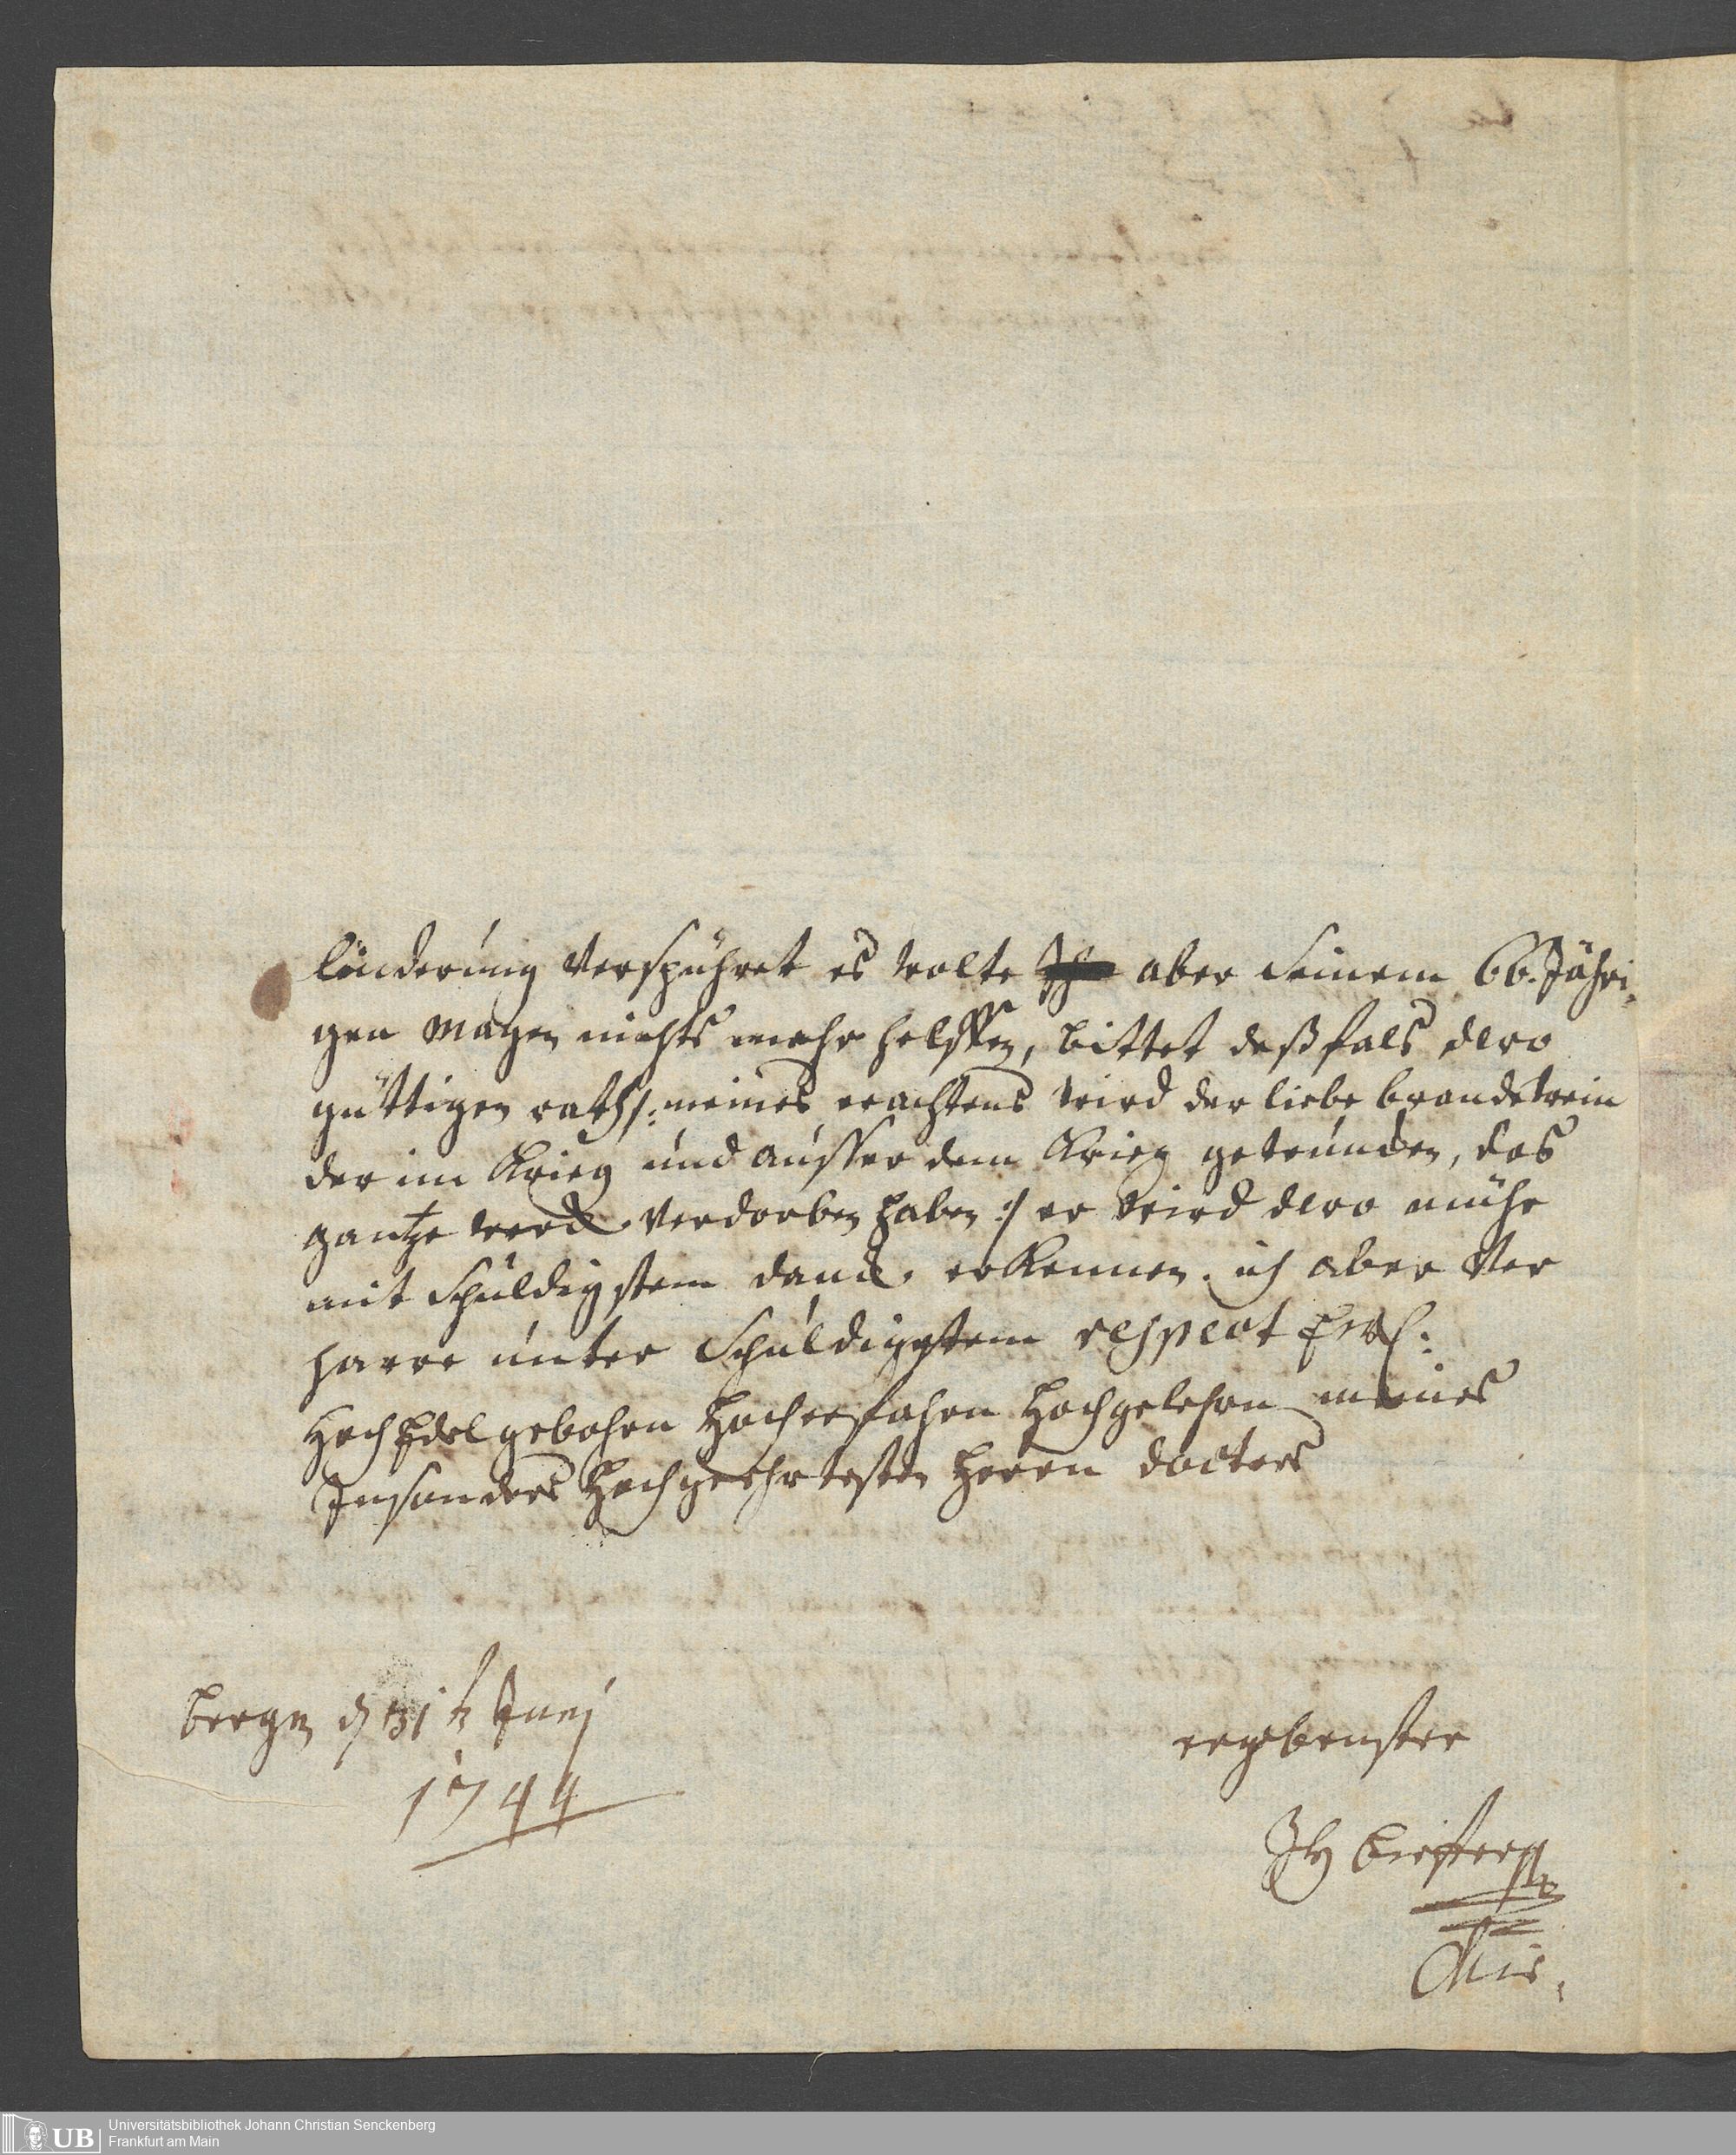 linderung verspühret es wolte aber Seinem 66. Jähri,
gen Magen nichts mehr helffen, bittet deßfals dero
güttigen rath /: meines erachtens wird der liebe brandtwein
der im Krieg und ausser dem Krieg getruncken, das
gantze werck verdorben haben :/ er wird dero mühe
mit schuldigstem danck erkennen. ich aber ver
harre unter Schuldigstem respect Ew:
HochEdelgebohrn Hocherfahrn Hochgelehrn meines
Insonders Hochgeehrtesten Herrn doctors
bergen d 31 t Juny
1744
ergebenster
Universitätsbibliothek Johann Christian Senckenberg
Frankfurt am Main
UB